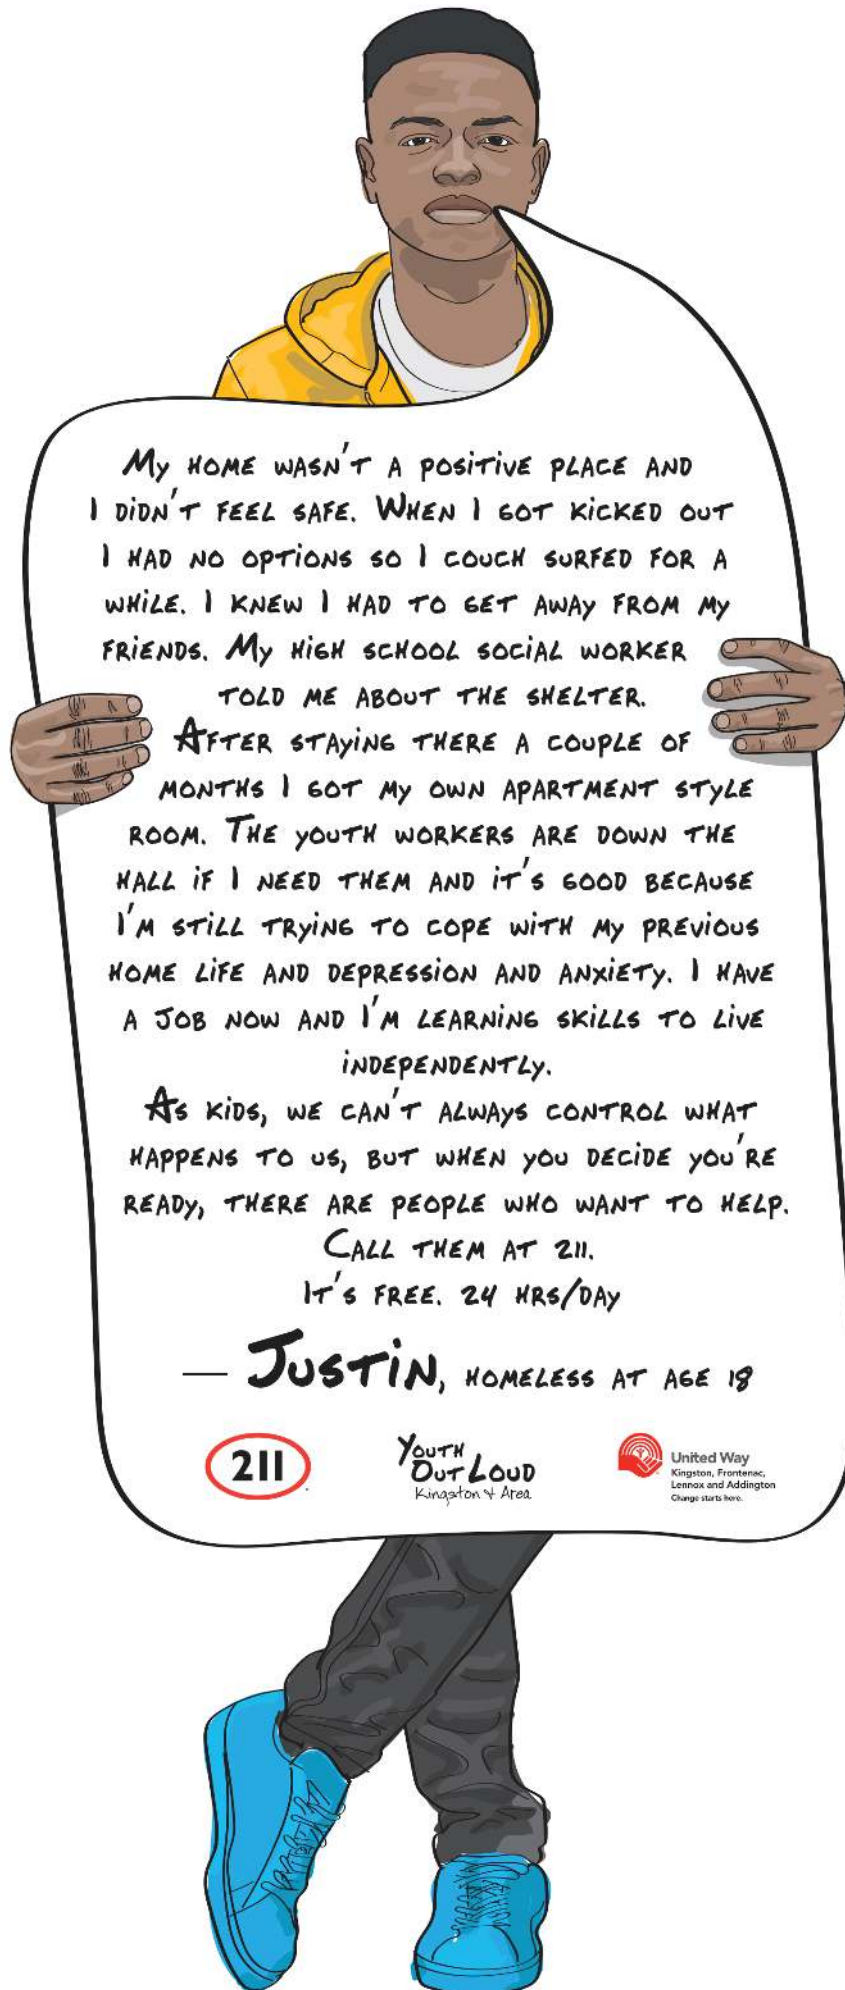 My home wasn't a positive place and
I didn't feel safe. When I got kicked out
I had no options so I couch surfed for a
while. I knew I had to get away from my
friends. My high school social worker
told me about the shelter.
After staying there a couple of
months I got my own apartment style
room. The youth workers are down the
hall if I need them and it's good because
I'm still trying to cope with my previous
home life and depression and anxiety. I have
a job now and I'm learning skills to live
independently.
As kids, we can't always control what
happens to us, but when you decide you're
ready, there are people who want to help.
Call them at 211.
It's free. 24 hrs/day
— Justin, homeless at age 18
211
Youth
Out Loud
Kingston & Area
United Way
Kingston, Frontenac,
Lennox and Addington
Change starts here.